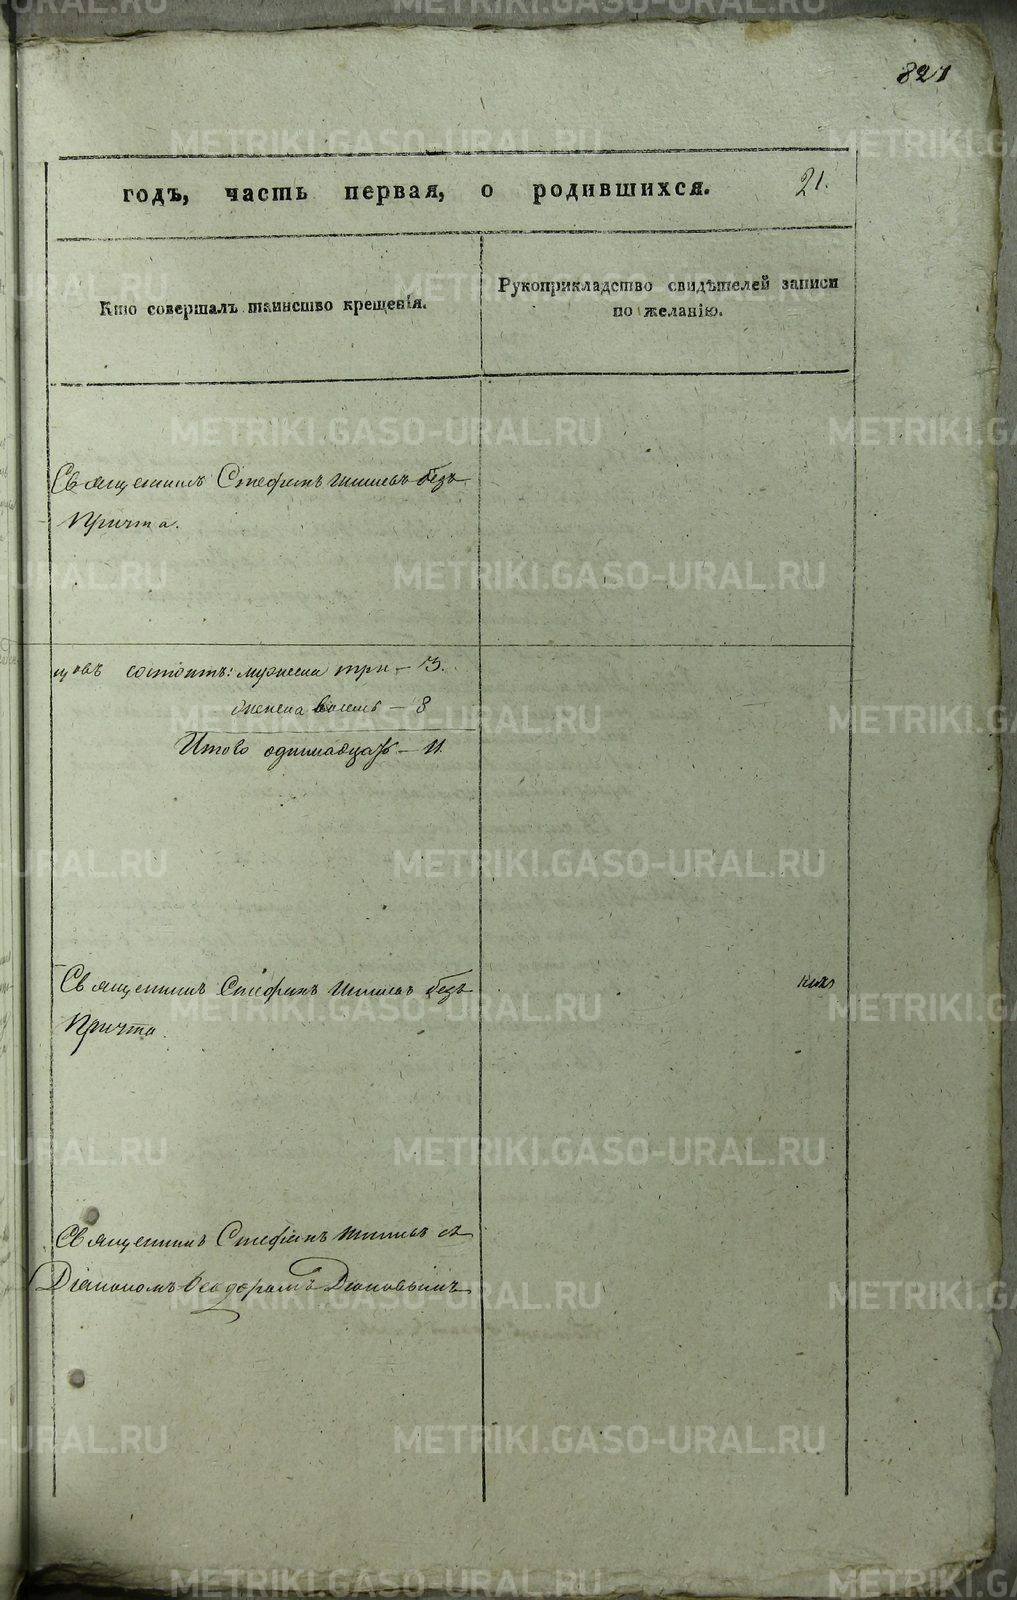 821
годъ, часть первая, о родившихся. 21.
Кто совершалъ таинство крещенія.
Рукоприкладство свидѣтелей записи
по желанію.
Священникъ Стефанъ безъ
Причта.
цовъ состоитъ: мужеска три – 3.
женска восемь – 8
Итого одиннадцать – 11.
Священникъ Стефанъ безъ
Причта.
Священникъ Стефанъ съ
Діакономъ Ѳеодоромъ
METRIKI.GASO-URAL.RU